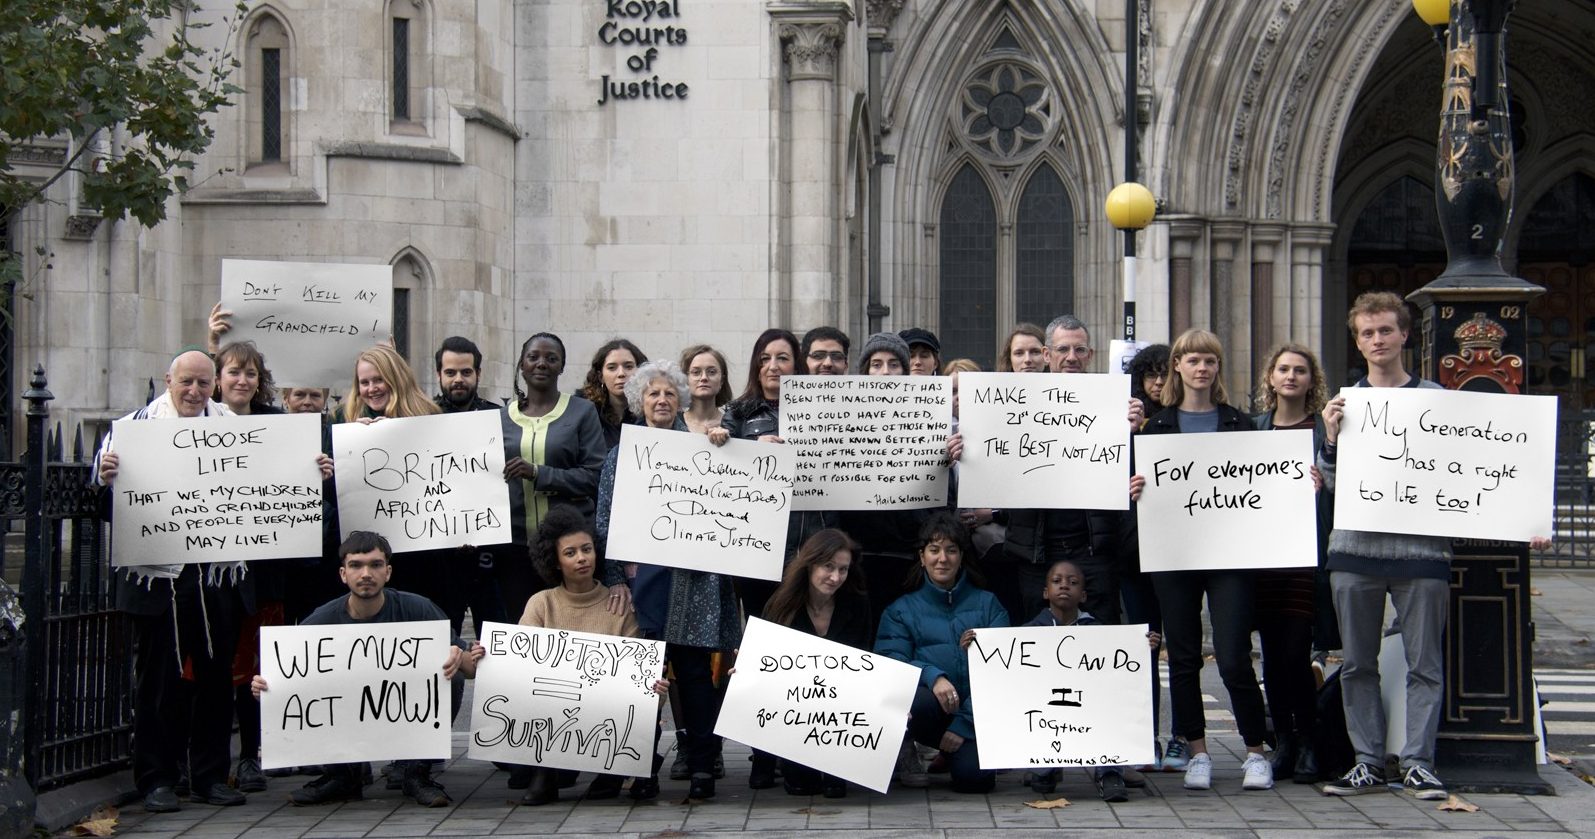 Royal
Courts
of
Justice
DON'T KILL MY
GRANDCHILD!
CHOOSE
LIFE
THAT WE, MY CHILDREN
AND GRANDCHILDREN
AND PEOPLE EVERYWHERE
MAY LIVE!
"BRITAIN"
AND
AFRICA
UNITED
Women, Children, Men,
Animals (inc INSECTS)
Demand
Climate Justice
THROUGHOUT HISTORY IT HAS
BEEN THE INACTION OF THOSE
WHO COULD HAVE ACTED,
THE INDIFFERENCE OF THOSE WHO
SHOULD HAVE KNOWN BETTER, THE
LENCE OF THE VOICE OF JUSTICE
HEN IT MATTERED MOST THAT HA
ADE IT POSSIBLE FOR EVIL TO
RIUMPH.
~ Haile Selassie ~
MAKE THE
21ST CENTURY
THE BEST NOT LAST
For everyone's
future
My Generation
has a right
to life too!
WE MUST
ACT NOW!
EQUITY
=
SURVIVAL
DOCTORS
&
MUMS
for CLIMATE
ACTION
WE CAN DO
IT
Togther
♡
AS WE UNITED AS ONE
2
19 02
BB